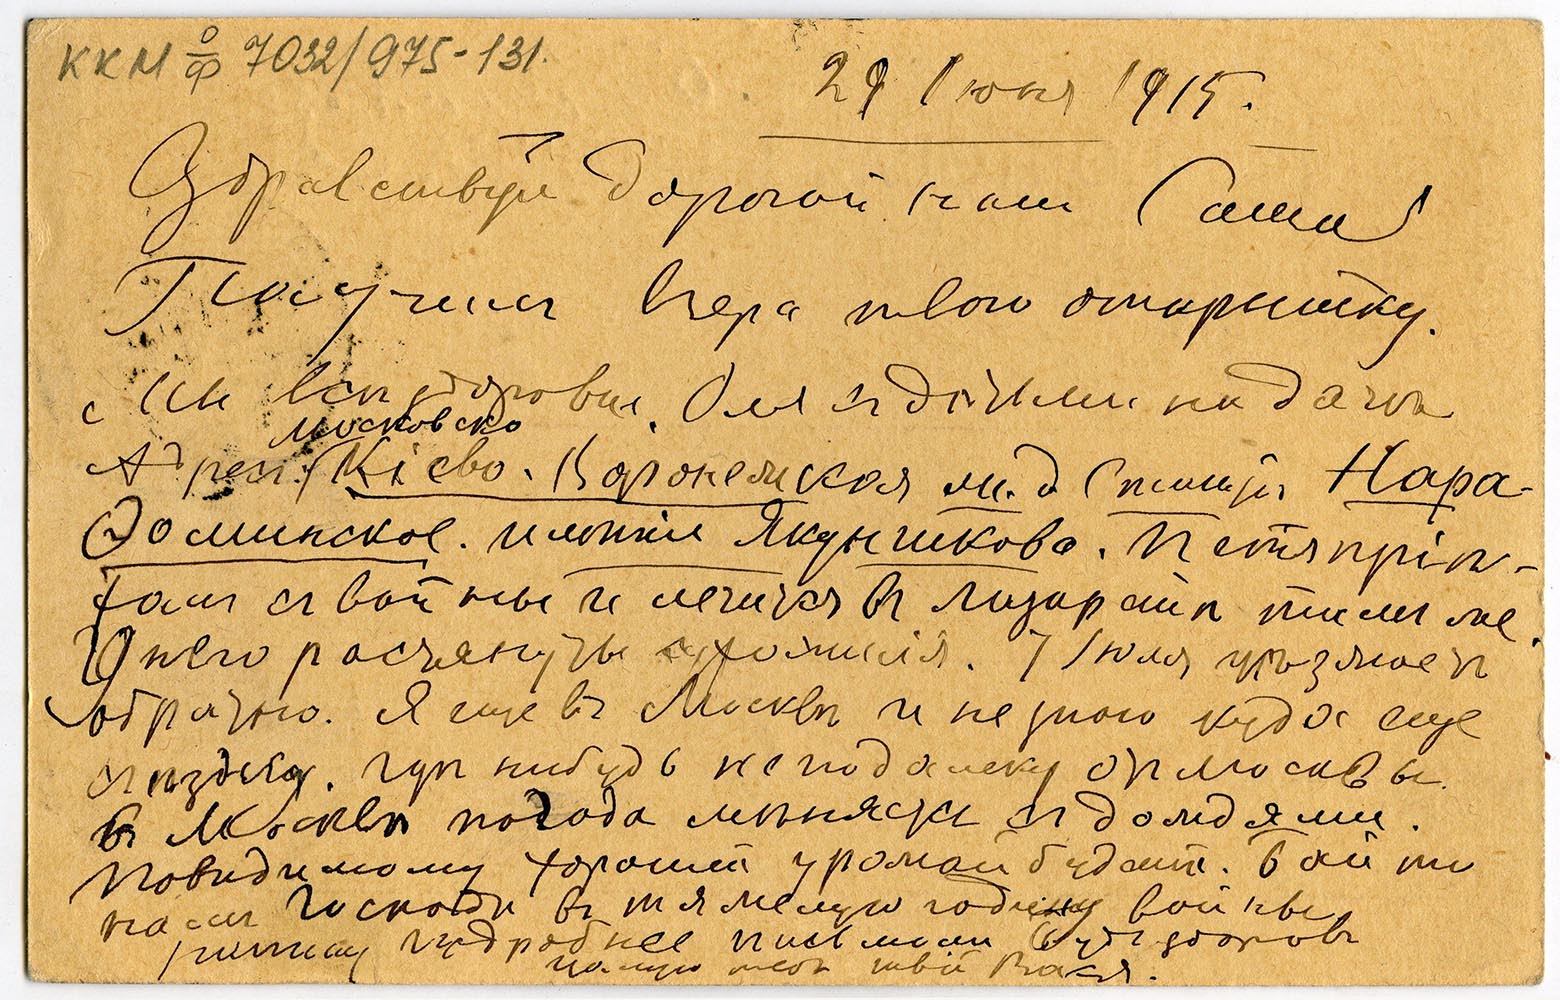 ККМ о/ф 7032/975-131.
29 Июня 1915.
Здравствуй дорогой наш Саша
Получил вчера твою открытку.
Мы всѣ здоровы. Оля съ дѣтьми на дачѣ
Московско
Адрес. Кіево. Воронежская ж.д Станція Нара-
Фоминское. имѣніе Якунчикова. Петя пріѣ-
халъ съ войны и лечится въ лазаретѣ
У него растянуты сухожилія. 7 Іюля уѣзжаетъ
обратно. Я еще въ Москвѣ и не знаю куда еще
поѣду. гдѣ нибудь неподалеку от Москвы.
въ Москвѣ погода мѣняется съ дождями.
Повидимому хороший урожай будетъ. Дай то
намъ Господи въ тяжелую годину войны
подробнее письмом Будь здоровъ
цѣлую тебя твой Вася.